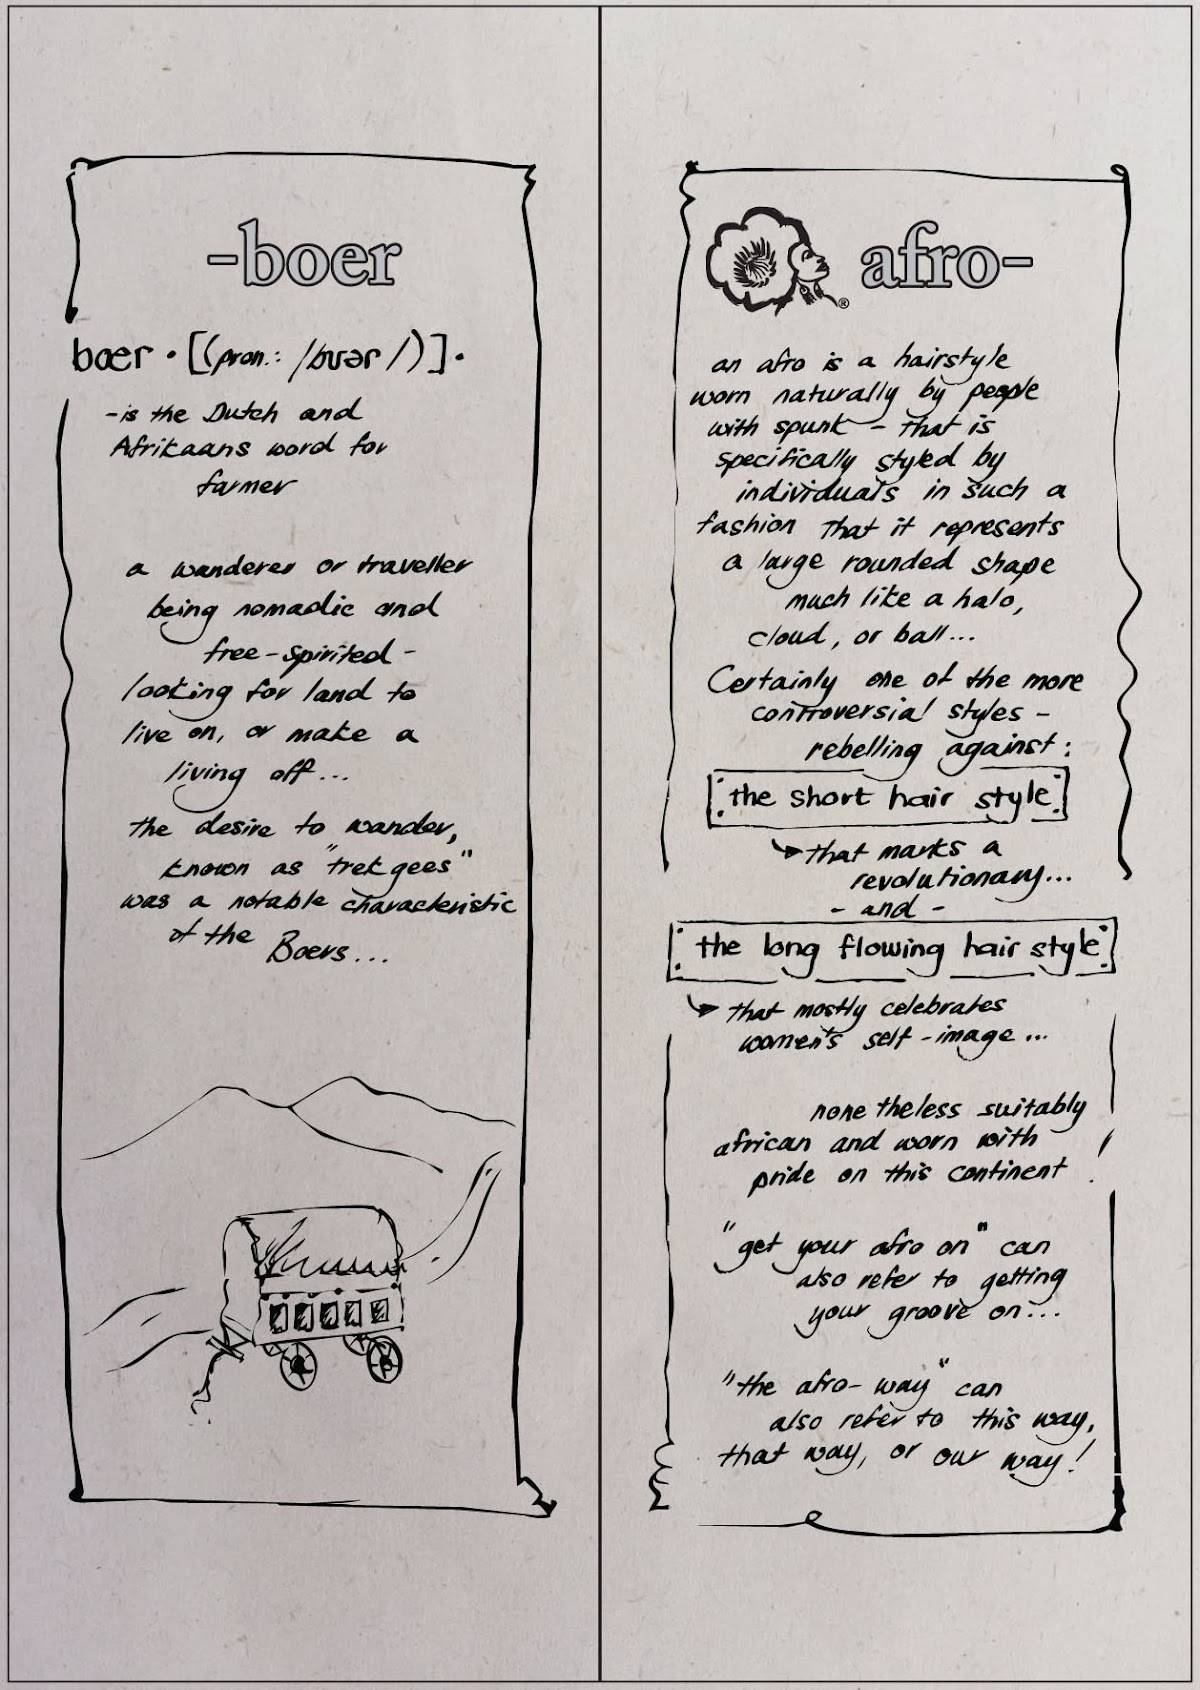 -boer
boer · [(pron.: /bʊər/)] ·
-is the Dutch and
Afrikaans word for
farmer
a wanderer or traveller
being nomadic and
free-spirited-
looking for land to
live on, or make a
living off...
the desire to wander,
known as "trekgees"
was a notable characteristic
of the Boers...
afro-
®
an afro is a hairstyle
worn naturally by people
with spunk - that is
specifically styled by
individuals in such a
fashion that it represents
a large rounded shape
much like a halo,
cloud, or ball...
Certainly one of the more
controversial styles -
rebelling against:
the short hair style
that marks a
revolutionary...
- and -
the long flowing hair style
that mostly celebrates
women's self-image...
nonetheless suitably
african and worn with
pride on this continent.
"get your afro on" can
also refer to getting
your groove on...
"the afro-way" can
also refer to this way,
that way, or our way!